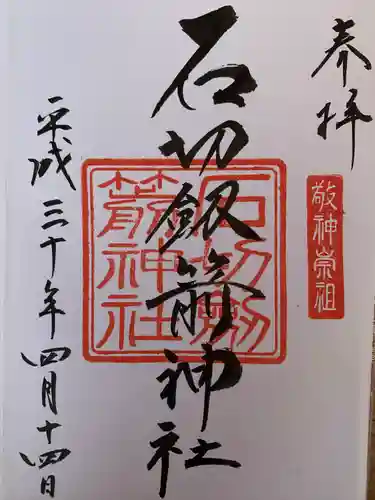 奉拝
敬神崇祖
石切劔箭神社
石切劔
箭神社
平成三十年四月十四日